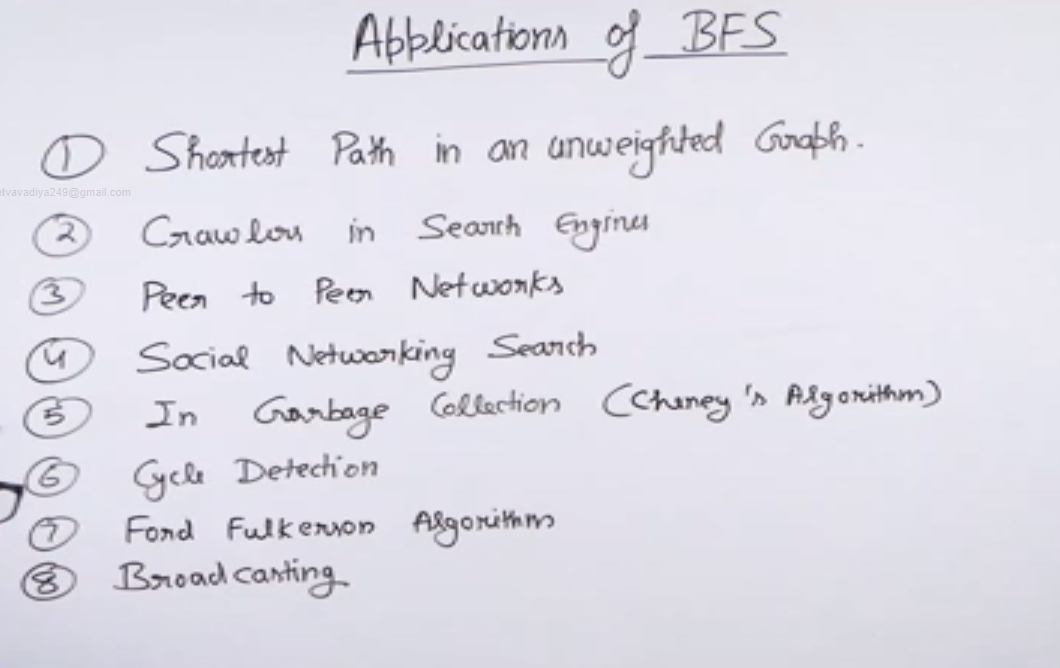 Applications of BFS
① Shortest Path in an unweighted Graph.
tvavadiya249@gmail.com
② Crawlers in Search Engines
③ Peer to Peer Networks
④ Social Networking Search
⑤ In Garbage Collection (Cheney's Algorithm)
⑥ Cycle Detection
⑦ Ford Fulkerson Algorithm
⑧ Broadcasting